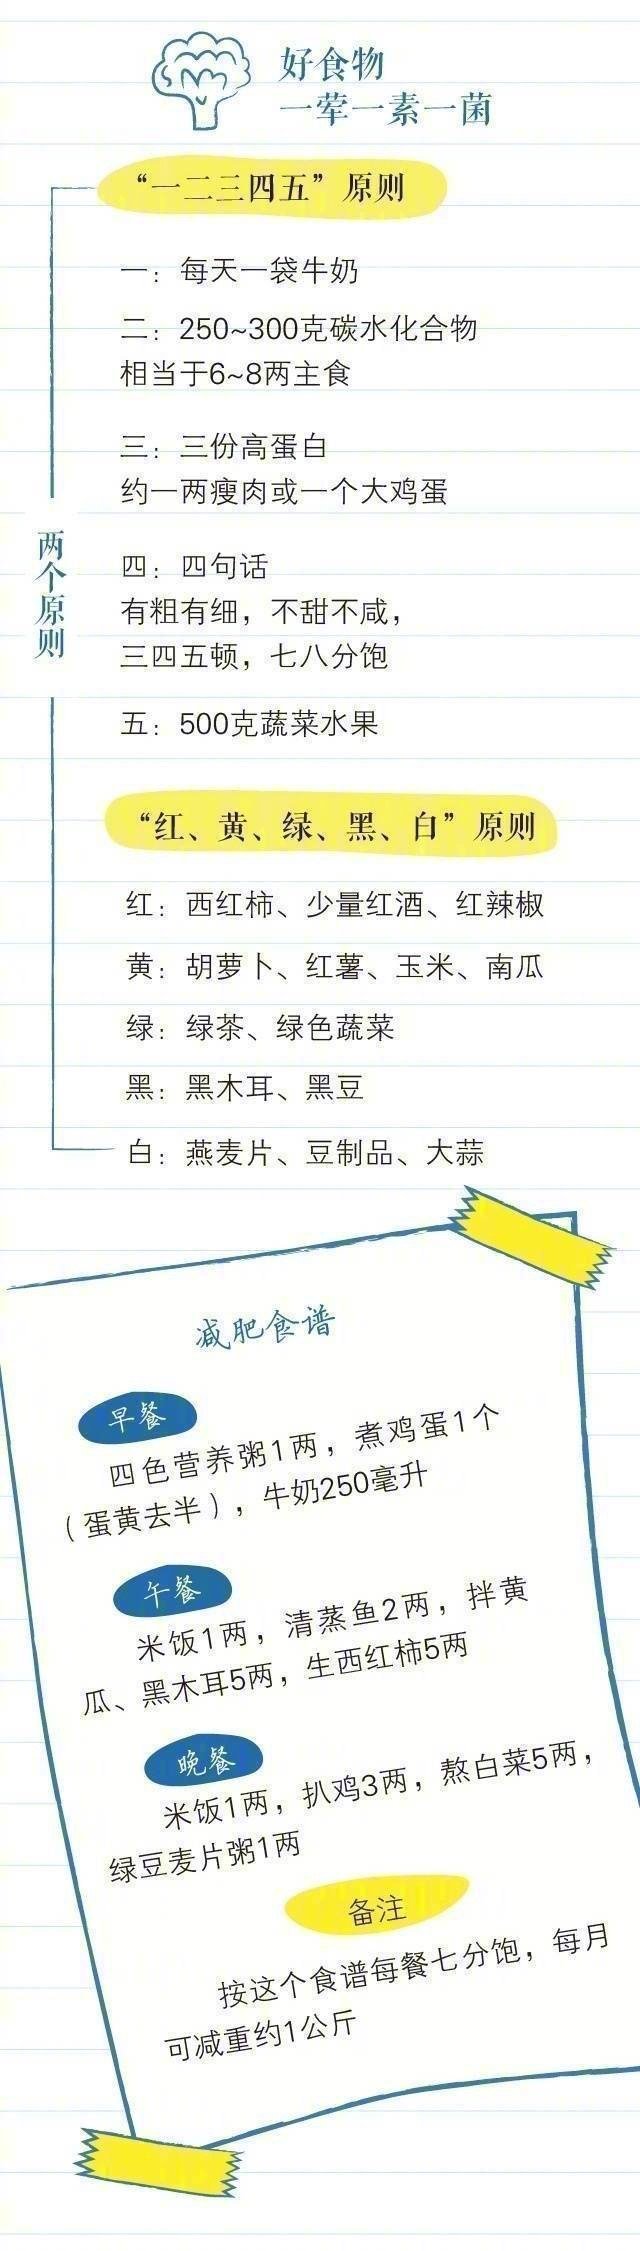 好食物
一荤一素一菌
“一二三四五”原则
一：每天一袋牛奶
二：250~300克碳水化合物
相当于6~8两主食
三：三份高蛋白
约一两瘦肉或一个大鸡蛋
两个原则
四：四句话
有粗有细，不甜不咸，
三四五顿，七八分饱
五：500克蔬菜水果
“红、黄、绿、黑、白”原则
红：西红柿、少量红酒、红辣椒
黄：胡萝卜、红薯、玉米、南瓜
绿：绿茶、绿色蔬菜
黑：黑木耳、黑豆
白：燕麦片、豆制品、大蒜
减肥食谱
早餐
四色营养粥1两，煮鸡蛋1个
（蛋黄去半），牛奶250毫升
午餐
米饭1两，清蒸鱼2两，拌黄
瓜、黑木耳5两，生西红柿5两
晚餐
米饭1两，扒鸡3两，熬白菜5两，
绿豆麦片粥1两
备注
按这个食谱每餐七分饱，每月
可减重约1公斤